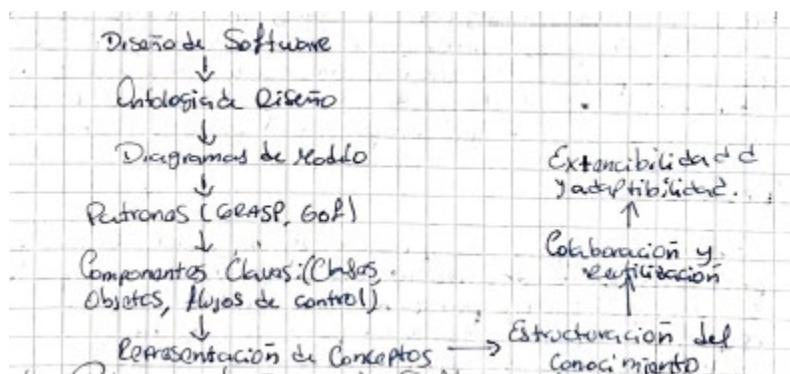 Diseño de Software
Ontologia de Diseño
Diagramas de Modelo
Patrones (GRASP, GoF)
Componentes Claves: (Clases.
Objetos, flujos de control).
Representación de Conceptos
Estructuración del
Conocimiento
Colaboración y
Reutilización
Extencibilidad d
y adaptibilidad.